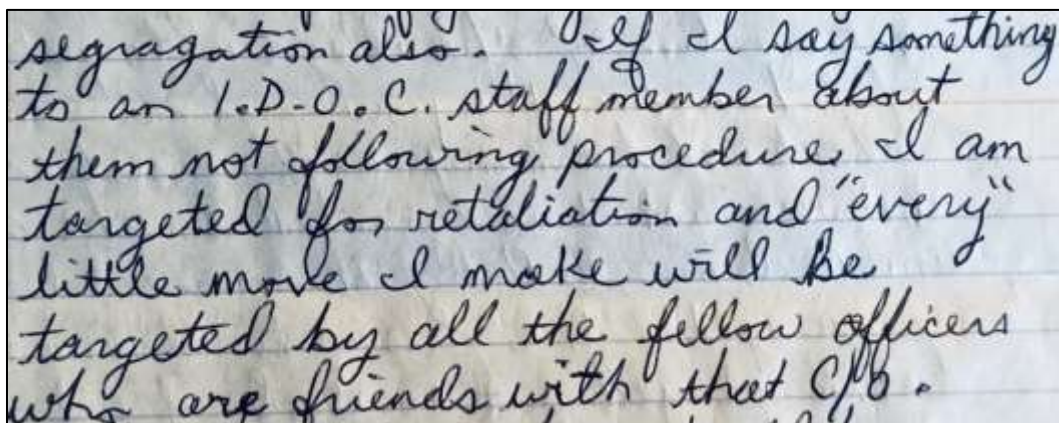 segragation also. If I say something
to an I.D.O.C. staff member about
them not following procedure, I am
targeted for retaliation and "every"
little move I make will be
targeted by all the fellow officers
who are friends with that C/O.